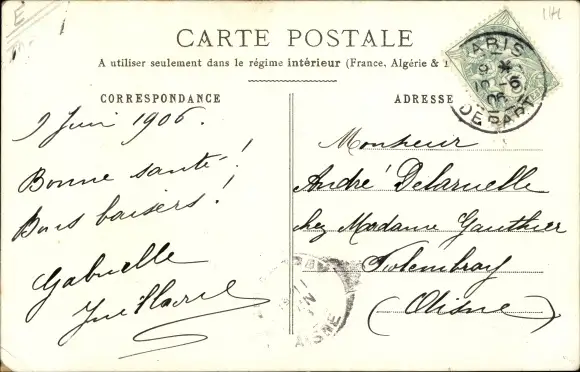 CARTE POSTALE
A utiliser seulement dans le régime intérieur (France, Algérie &
CORRESPONDANCE
9 Juin 1906.
Bonne santé!
Bons baisers!
Gabrielle
ADRESSE
Monsieur
André Delaruelle
chez Madame Gauthier
Folembray
(Aisne)
PARIS
DEPART
AISNE